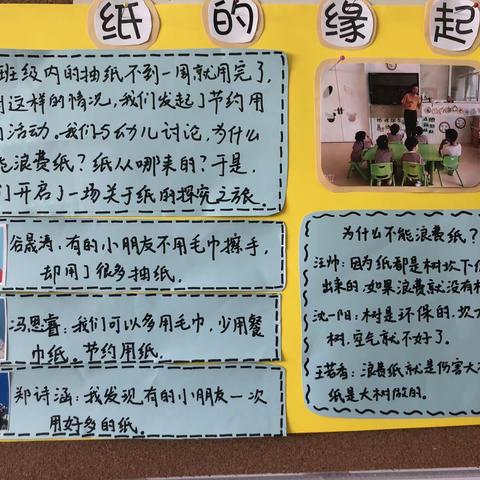 纸的缘起
班级内的抽纸不到一周就用完了,
这样的情况,我们发起了节约用
活动。我们与幼儿讨论,为什么
能浪费纸?纸从哪来的?于是,
们开启了一场关于纸的探究之旅.
谷晟涛:有的小朋友不用毛巾擦手,
却用了很多抽纸.
冯恩睿:我们可以多用毛巾,少用餐
巾纸。节约用纸.
郑诗涵:我发现有的小朋友一次
用好多的纸.
为什么不能浪费纸?
汪帅:因为纸都是树坎下
出来的.如果浪费就没有
沈一阳:树是环保的.坎
树,空气就不好了.
王若香:浪费纸就是伤害大
纸是大树做的.